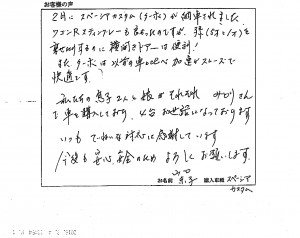 お客様の声
2月に スペーシアカスタム(ターボ)が納車されました。
ワゴンRスティングレーも良かったのですが、孫(5才と1才)を
乗せ降りするのに 横開きドアーは便利!
また ターボは以前の車と比べ 加速がスムーズで
快適です。
私たちの息子2人と娘がそれぞれ みどりさん
で車を購入しており、 お世話になっております
いつも ていねいな対応に感謝しています
今後も 安心、安全のため よろしく お願いします。
お名前 購入車種 スペーシア
カスタム